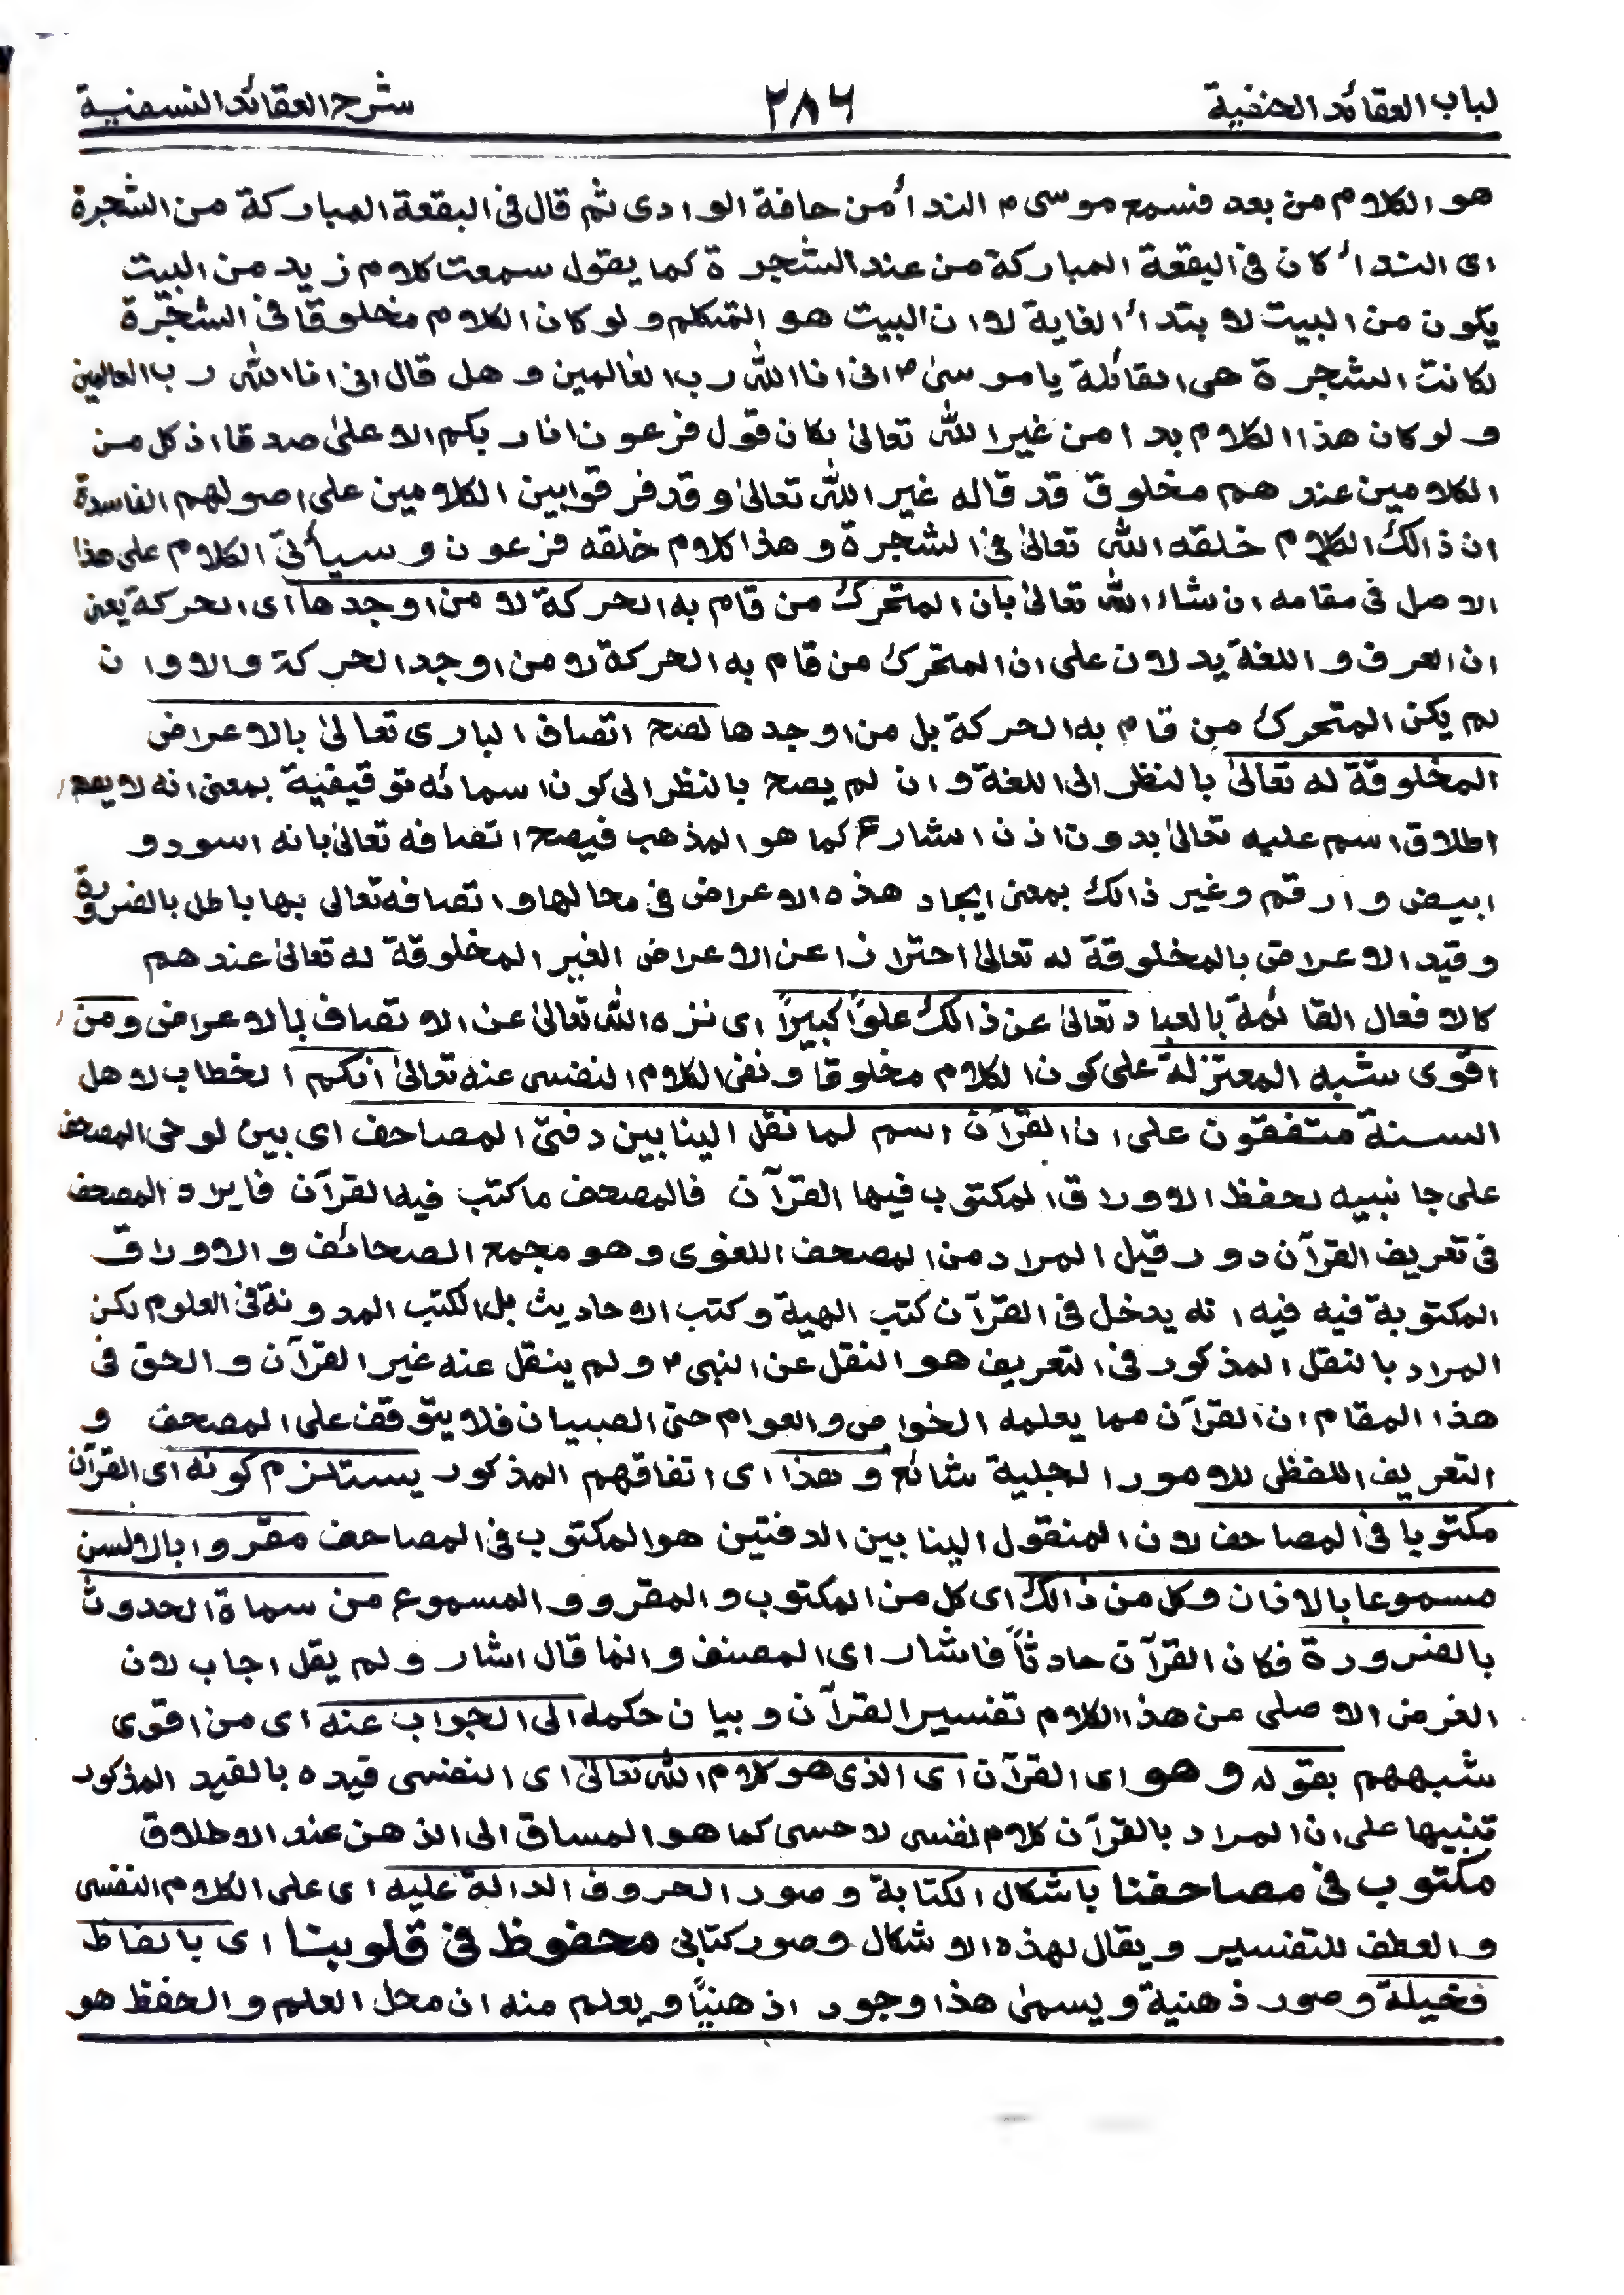 لباب العقائد الحنفية ٢٨٦ شرح العقائد النسفية
هو الكلام من بعد فسمع موسى م النداء من حافة الوادى ثم قال فى البقعة المباركة من الشجرة
اى النداء كان فى البقعة المباركة من عند الشجرة كما يقول سمعت كلام زيد من البيت
يكون من البيت لابتداء الغاية لا ان البيت هو المتكلم و لو كان الكلام مخلوقا فى الشجرة
لكانت الشجرة هى القائلة يا موسىٰ م انى انا الله رب العٰالمين و هل قال انى انا الله رب العالمين
و لو كان هذا الكلام بدا من غير الله تعالىٰ لكان قول فرعون انا ربكم الاعلىٰ صدقا اذ كل من
الكلامين عندهم مخلوق قد قاله غير الله تعالىٰ و قد فرقوا بين الكلامين على اصولهم الفاسدة
ان ذالك الكلام خلقه الله تعالىٰ فى الشجرة و هذا كلام خلقه فرعون و سيأتى الكلام على هذا
الاصل فى مقامه ان شاء الله تعالىٰ بان المتحرك من قام به الحركة لا من اوجدها اى الحركة يعنى
ان العرف و اللغة يدلان على ان المتحرك من قام به الحركة لا من اوجد الحركة و الا و ان
لم يكن المتحرك من قام به الحركة بل من اوجدها لصح اتصاف البارى تعالىٰ بالاعراض
المخلوقة له تعالىٰ بالنظر الى اللغة و ان لم يصح بالنظر الى كون اسمائه توقيفية بمعنى انه لا يصح
اطلاق اسم عليه تعالىٰ بدون اذن الشارع كما هو المذهب فيصح اتصافه تعالىٰ بانه اسود و
ابيض و ارقم و غير ذالك بمعنى ايجاد هذه الاعراض فى محالها و اتصافه تعالى بها باطل بالضرورة
و قيد الاعراض بالمخلوقة له تعالىٰ احترازا عن الاعراض الغير المخلوقة له تعالىٰ عندهم
كالافعال القائمة بالعباد تعالىٰ عن ذالك علوًا كبيرًا اى نزه الله تعالىٰ عن الاتصاف بالاعراض و من
اقوى شبه المعتزلة على كون الكلام مخلوقا و نفى الكلام النفسى عنه تعالىٰ انكم الخطاب لاهل
السنة متفقون على ان القرآن اسم لما نقل الينا بين دفتى المصاحف اى بين لوحى المصحف
على جانبيه لحفظ الاوراق المكتوب فيها القرآن فالمصحف ما كتب فيه القرآن فايراد المصحف
فى تعريف القرآن دور قيل المراد من المصحف اللغوى و هو مجمع الصحائف و الاوراق
المكتوبة فيه فيه انه يدخل فى القرآن كتب الهية و كتب الاحاديث بل الكتب المدونة فى العلوم لكن
المراد بالنقل المذكور فى التعريف هو النقل عن النبى م و لم ينقل عنه غير القرآن و الحق فى
هذا المقام ان القرآن مما يعلمه الخواص و العوام حتى الصبيان فلا يتوقف على المصحف و
التعريف اللفظى للامور الجلية شائع و هذا اى اتفاقهم المذكور يستلزم كونه اى القرآن
مكتوبا فى المصاحف لان المنقول الينا بين الدفتين هو المكتوب فى المصاحف مقروا بالالسن
مسموعا بالاذان و كل من ذالك اى كل من المكتوب و المقرو و المسموع من سماة الحدوث
بالضرورة فكان القرآن حادثاً فاشار اى المصنف و انما قال اشار و لم يقل اجاب لان
الغرض الاصلى من هذا الكلام تفسير القرآن و بيان حكمه الى الجواب عنه اى من اقوى
شبههم بقوله و هو اى القرآن اى الذى هو كلام الله تعالىٰ اى النفسى قيده بالقيد المذكور
تنبيها على ان المراد بالقرآن كلام نفسى لا حسى كما هو المساق الى الذهن عند الاطلاق
مكتوب فى مصاحفنا باشكال الكتابة و صور الحروف الدالة عليه اى على الكلام النفسى
و العطف للتفسير و يقال لهذه الاشكال و صور كتابى محفوظ فى قلوبنا اى بالفاظ
مخيلة و صور ذهنية و يسمىٰ هذا وجودا ذهنيًا و يعلم منه ان محل العلم و الحفظ هو